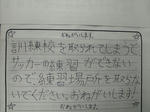 おねがいします。
訓練校を取られてしまって
サッカーの練習ができない
ので練習場所を取らな
いでください。おねがいします!
おねがいします。